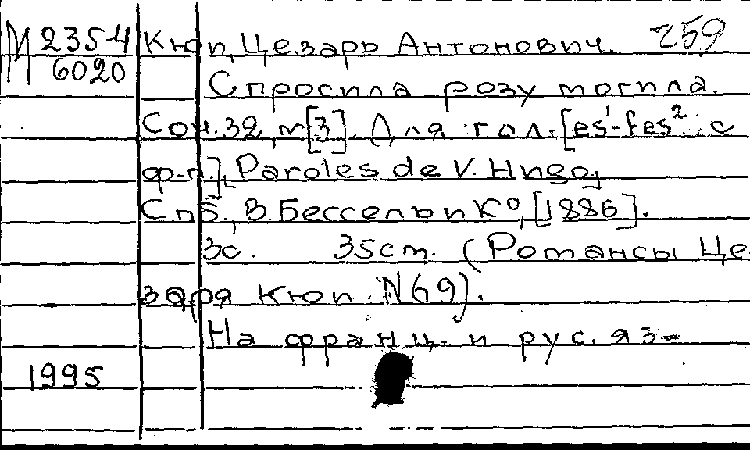 М 2354 Кюи, Цезарь Антонович. 259
6020
Спросила розу могила.
Соч. 32, № [3]. Для гол. [es¹-fes² с
ф-п.], Paroles de V. Hugo,
Спб., В. Бессель и К⁰, [1886].
3с. 35cm. (Романсы Це-
заря Кюи. N 69).
На франц. и рус. яз-
1995